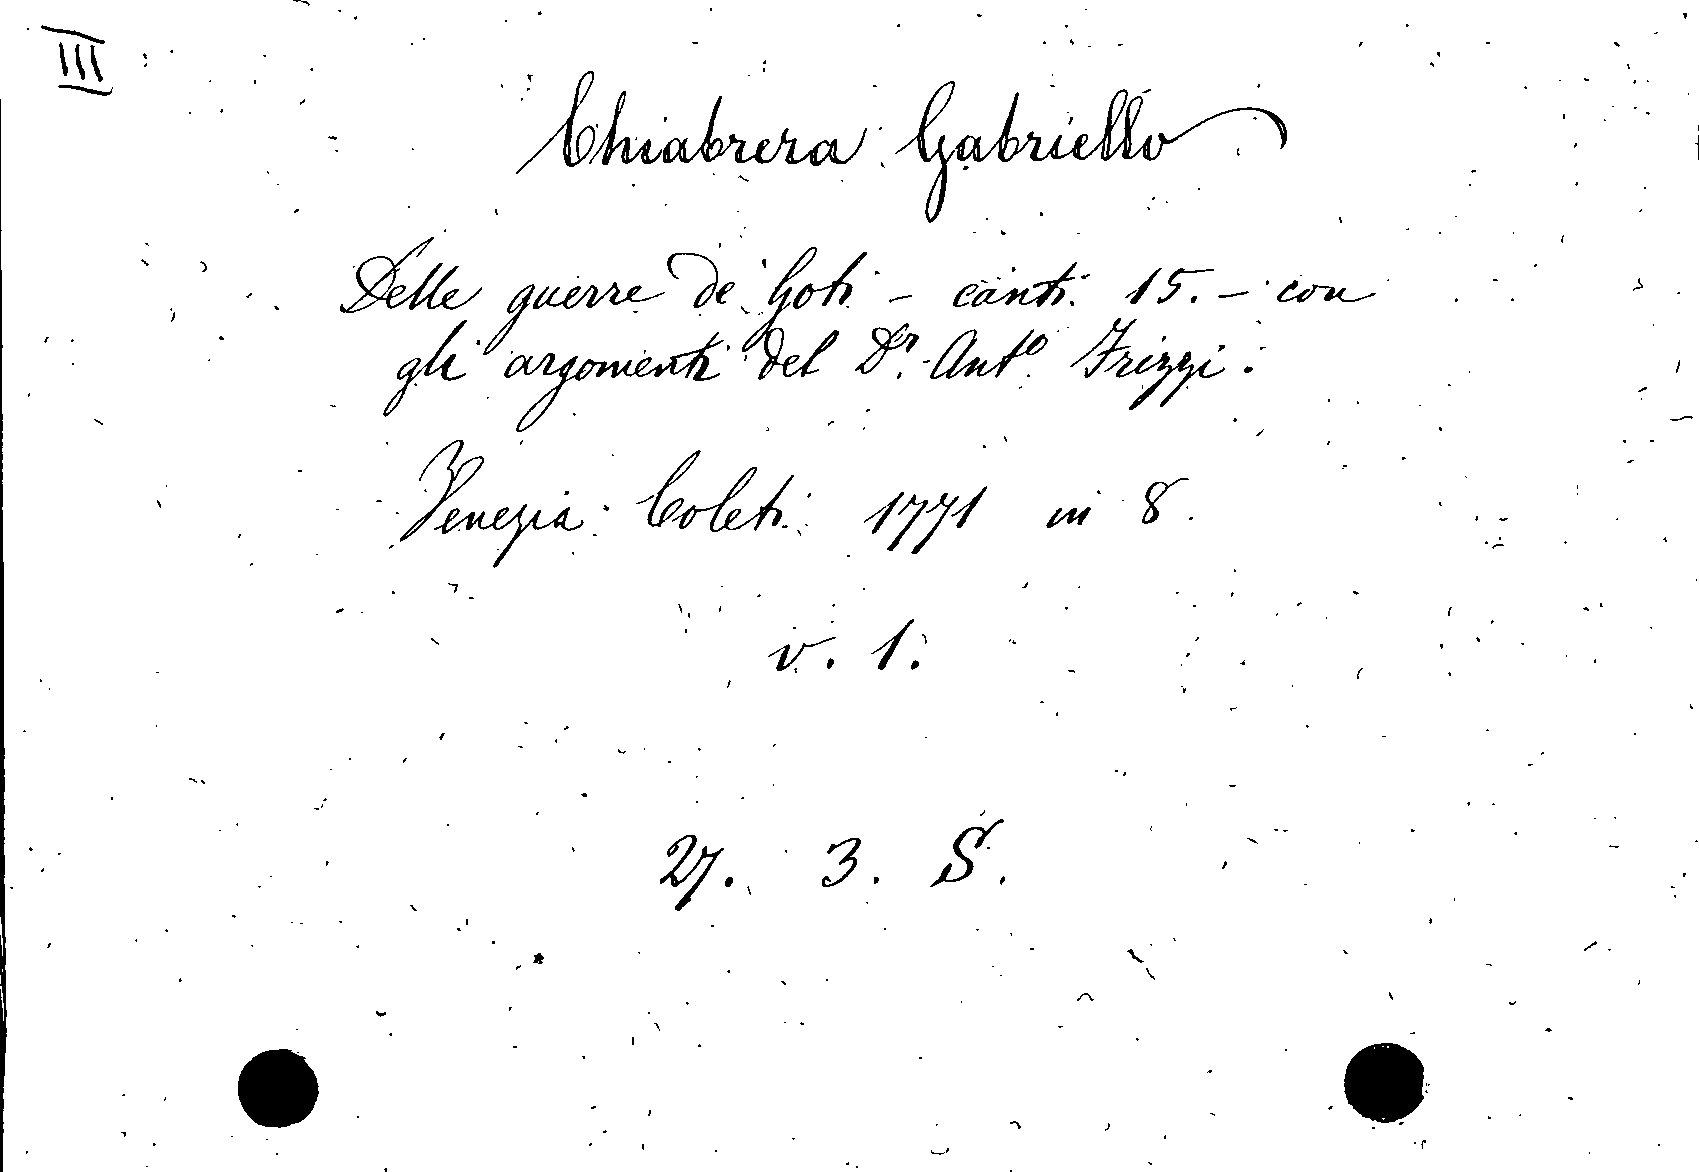 III
Chiabrera Gabriello
Delle guerre de' Goti - canti 15. - con
gli argomenti del Dr. Anto. Frizzi.
Venezia Coleti 1771 in 8.
v. 1.
27. 3. S.